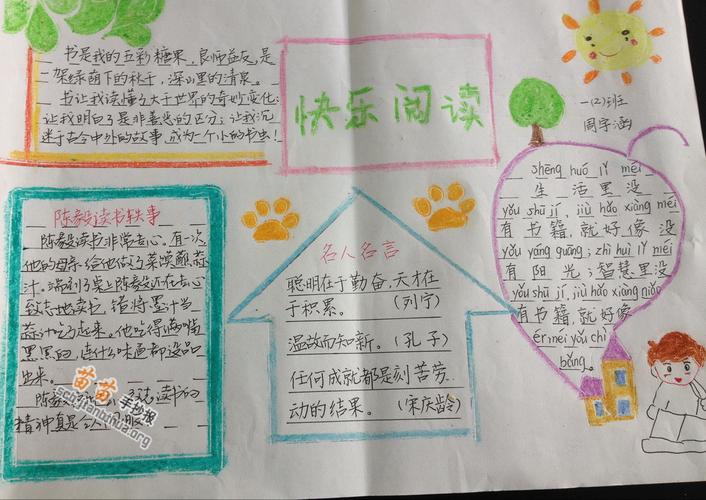 书是我的五彩糖果,良师益友,是
架绿荫下的林子,深山里的清泉。
书让我读懂了大于世界的奇妙变化;
让我明白了是非善恶的区分;让我沉
迷于古今中外的故事,成为一个小的书虫!
快乐阅读
一(2)班
周宇涵
陈毅读书轶事
陈毅读书非常专心,有一次
他的母亲给他做了菜馍蘸蒜
汁。端到了桌上陈毅还在专心
致志地读书,错将墨汁当
蒜汁吃了起来。他吃得满嘴
黑黑的,连什么味道都没品
出来。
陈毅
志读书的
精神真是
名人名言
聪明在于勤奋,天才在
于积累。(列宁)
温故而知新。(孔子)
任何成就都是刻苦劳
动的结果。(宋庆龄)
shēng huó lǐ méi
生活里没
yǒu shū jí, jiù hǎo xiàng méi
有书籍,就好像没
yǒu yáng guāng; zhì huì lǐ méi
有阳光;智慧里没
yǒu shū jí, jiù hǎo xiàng niǎo
有书籍,就好像
ér méi yǒu chì
bǎng。
苗苗手抄报